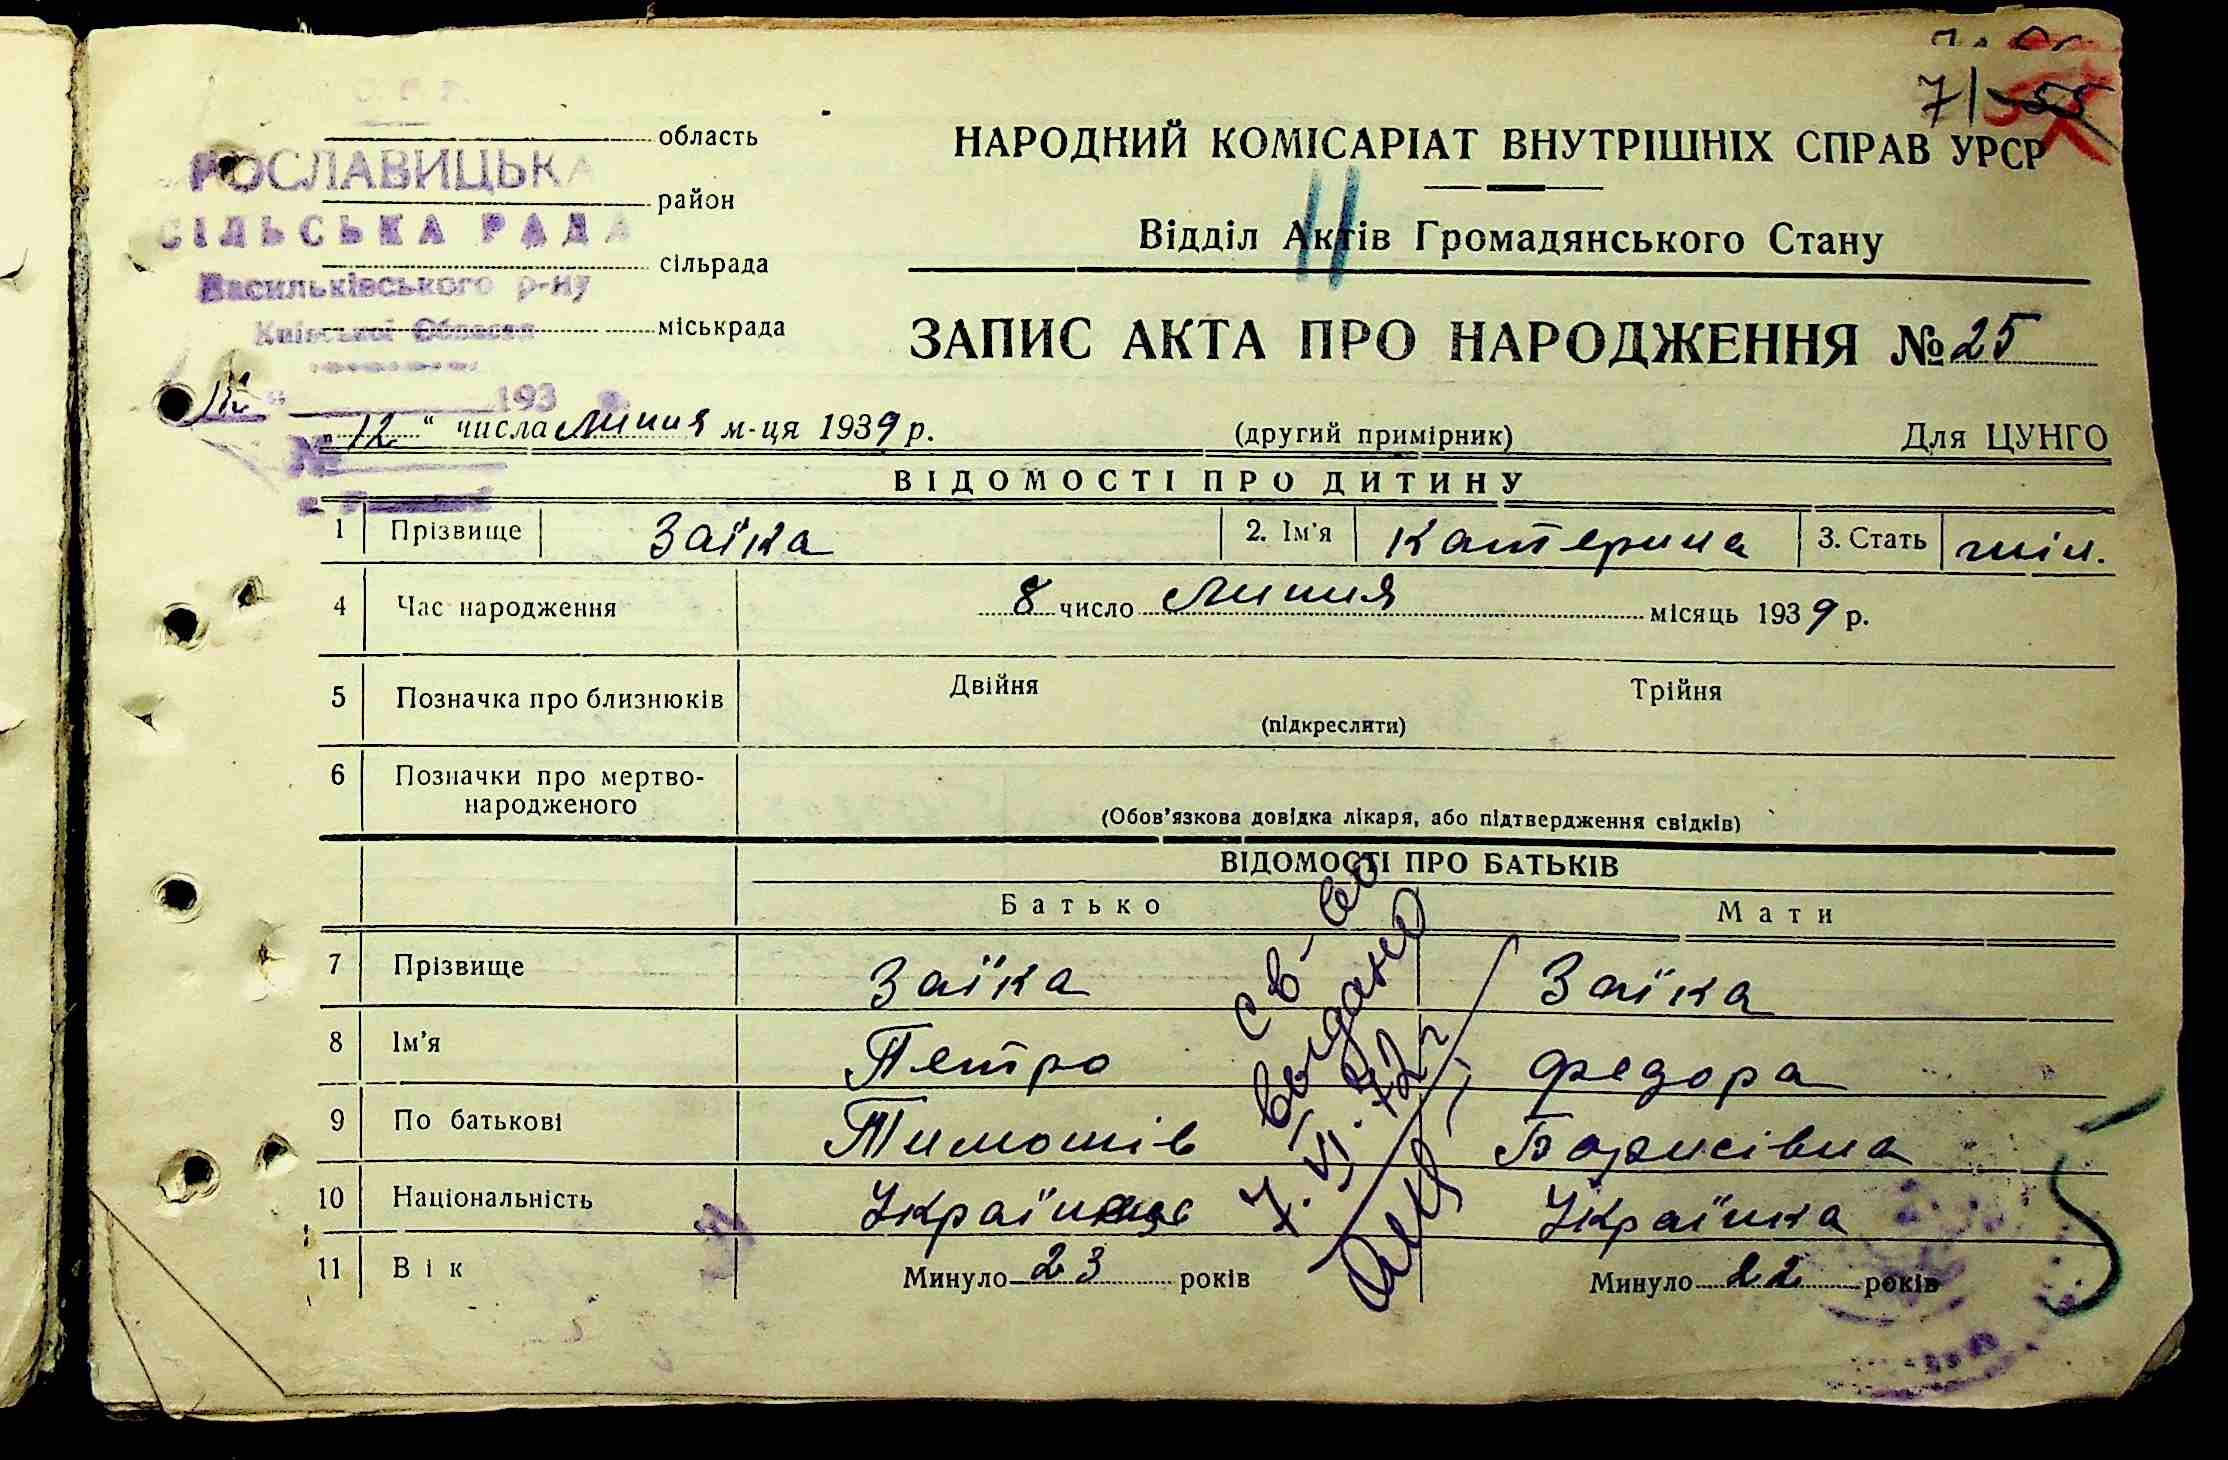 7/ 55
область
РОСЛАВИЦЬКА
район
СІЛЬСЬКА РАДА
сільрада
Васильківського р-ну
Київської Области
міськрада
193
№
НАРОДНИЙ КОМІСАРІАТ ВНУТРІШНІХ СПРАВ УРСР
11
Відділ Актів Громадянського Стану
ЗАПИС АКТА ПРО НАРОДЖЕННЯ № 25
„ 12 “ числа липня м-ця 1939 р. (другий примірник) Для ЦУНГО
ВІДОМОСТІ ПРО ДИТИНУ
1 Прізвище Заїка 2. Ім'я Катерина 3. Стать жін.
4 Час народження 8 число Липня місяць 1939 р.
5 Позначка про близнюків Двійня Трійня
(підкреслити)
6 Позначки про мертво-
народженого
(Обов'язкова довідка лікаря, або підтвердження свідків)
ВІДОМОСТІ ПРО БАТЬКІВ
Батько Мати
7 Прізвище Заїка Заїка
8 Ім'я Петро Федора
9 По батькові Тимошів Борисівна
10 Національність Українець Українка
11 Вік Минуло 23 років Минуло 22 років
св-во
видано
7.VI.72 г